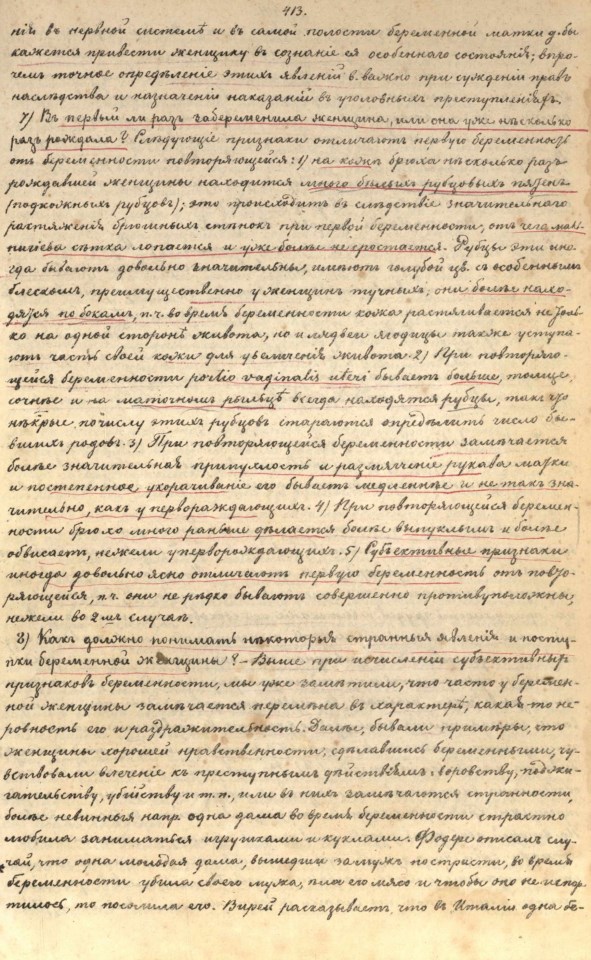 413.
нія въ нервной системѣ и въ самой полости беременной матки д.бы
кажется привести женщину въ сознаніе ея особеннаго состоянія; впро-
чемъ точное опредѣленіе этихъ явленій в. важно при сужденіи правъ
наслѣдства и назначеніи наказаній въ уголовныхъ преступленіяхъ.
7) Въ первый ли разъ забеременила женщина, или она уже нѣсколько
разъ рождала? Слѣдующіе признаки отличаютъ первую беременность
отъ беременности повторяющейся: 1) на кожѣ брюха нѣсколько разъ
рождавшей женщины находится много бѣлыхъ рубцовыхъ пятенъ
(подкожныхъ рубцовъ); это происходитъ въ слѣдствіе значительнаго
растяженія брюшныхъ стѣнокъ при первой беременности, отъ чего маль-
пигіева сѣтка лопается и уже болѣе не сростается. Рубцы эти ино-
гда бываютъ довольно значительны, имѣютъ голубой цв. съ особеннымъ
блескомъ, преимущественно у женщинъ тучныхъ; они болѣе нахо-
дятся по бокамъ, п.ч. во время беременности кожа растягивается не толь-
ко на одной сторонѣ живота, но и лядвеи ягодицы также уступа-
ютъ часть своей кожи для увеличенія живота. 2) При повторяю-
щейся беременности portio vaginalis uteri бываетъ больше, толще,
сочнѣе и на маточномъ рыльцѣ всегда находятся рубцы, такъ что
нѣкрые по числу этихъ рубцовъ стараются опредѣлить число бы-
вшихъ родовъ. 3) При повторяющейся беременности замѣчается
болѣе значительная припухлость и размягченіе рукава матки
и постепенное укорачиваніе его бываетъ медленнѣе и не такъ зна-
чительно, какъ у первораждающихъ. 4) При повторяющейся беремен-
ности брюхо много раньше дѣлается болѣе выпуклымъ и болѣе
обвисаетъ, нежели у перворождающихъ. 5) Субъективные признаки
иногда довольно ясно отличаютъ первую беременность отъ повто-
ряющейся, п.ч. они не рѣдко бываютъ совершенно противуположны,
нежели во 2мъ случаѣ.
8) Какъ должно понимать нѣкоторыя странныя явленія и посту-
пки беременной женщины? – Выше при исчисленіи субъективныхъ
признаковъ беременности, мы уже замѣтили, что часто у беремен-
ной женщины замѣчается перемѣна въ характерѣ, какая то не-
ровность его и раздражительность. Далѣе, бывали примѣры, что
женщины хорошей нравственности, сдѣлавшись беременными, чу-
вствовали влеченіе къ преступнымъ дѣйствіямъ: воровству, поджи-
гательству, убійству и т.п., или въ нихъ замѣчаются странности,
болѣе невинныя напр. одна дама во время беременности страстно
любила заниматься игрушками и куклами. Фодере описалъ слу-
чай, что одна молодая дама, вышедши замужъ по страсти, во время
беременности убила своего мужа, ѣла его мясо и чтобы оно не испор-
тилось, то посолила его. Вирей разсказываетъ что въ Италіи одна бе-